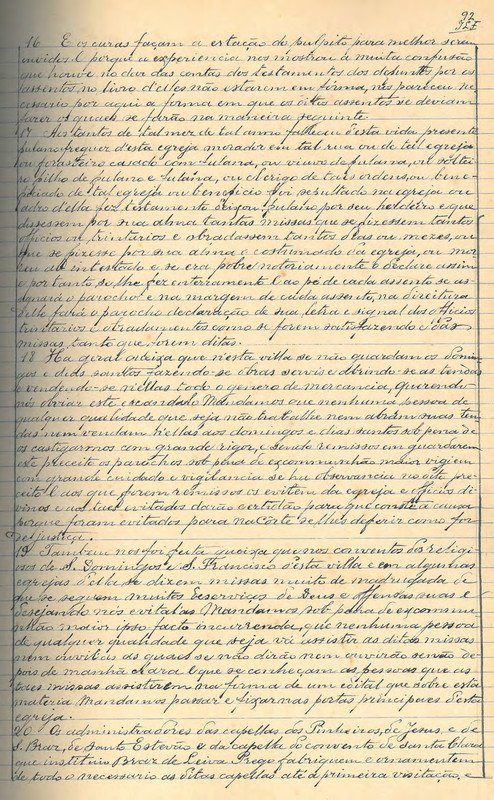 92
16 E os curas façam a estação do pulpito para melhor serem
ouvidos. E porque a experiencia nos mostrou a muita confusão
que houve no dar das contas dos testamentos dos defuntos por os
assentos, no livro d'elles não estarem em forma, nos pareceu ne-
cessario por aqui a forma em que os ditos assentos se deviam
fazer os quaes se farão na maneira seguinte.
17 Aos tantos de tal mez de tal anno falleceu d'esta vida presente
fulano freguez d'esta egreja morador em tal rua ou de tal egreja
ou forasteiro casado com fulana, ou viuvo de fulana, ou soltei-
ro filho de fulano e fulana, ou clerigo de taes ordens, ou bene-
ficiado de tal egreja ou beneficio foi sepultado na egreja ou
adro d'ella fez testamento deixou fulano por seu herdeiro e que
dissessem por sua alma tantas missas que se fizessem tantos
officios ou trintarios e obradassem tantos dias ou mezes, ou
que se fizesse por sua alma o costumado da egreja, ou mor-
reu ab intestado e se era pobre notoriamente o declare assim
e por tanto se lhe fez enterramento e ao pé de cada assento se as-
signará o parocho e na margem de cada assento, na direitura
d'elle fará o parocho declaração de sua letra e signal dos officios
trintarios e obradamentos como se forem satisfazendo e das
missas, tanto que forem ditas.
18 Ha geral queixa que n'esta villa se não guardam os domin-
gos e dias santos fazendo-se obras servis e abrindo-se as tendas
e vendendo-se n'ellas todo o genero de mercancia, Querendo
nós obviar este escandalo Mandamos que nenhuma pessoa de
qualquer qualidade que seja não trabalhe nem abram suas ten-
das nem vendam n'ellas aos domingos e dias santos sob pena de
os castigarmos com grande rigor, e sendo remissos em guardarem
este preceito os parochos sob pena de excommunhão maior vigiem
com grande cuidado e vigilancia se ha observancia n'este pre-
ceito E aos que forem remissos os evitem da egreja e officios di-
vinos e aos taes evitados darão certidão para que conste a causa
porque foram evitados para na Corte se lhes deferir como for
de justiça.
19 Tambem nos foi feita queixa que nos conventos dos religi-
osos de S. Domingos e S. Francisco d'esta villa e em algumas
egrejas d'ella se dizem missas muito de madrugada de
que se seguem muitos desserviços de Deus e offensas suas e
desejando nós evital-as Mandamos sob pena de excommu-
nhão maior ipso facto incurrenda, que nenhuma pessoa
de qualquer qualidade que seja vá assistir ás ditas missas
nem ouvil-as as quaes se não dirão nem ouvirão senão de-
pois de manhã clara E que se conheçam as pessoas que as
taes missas assistirem na forma de um edital que sobre esta
materia Mandamos passar e fixar nas portas principaes d'esta
egreja.
20 Os administradores das capellas dos Pinheiros, de Jesus e de
S. Braz, de Santo Estevão e da capella do convento de Santa Clara
que instituiu Braz de Leiva Prego fabriquem e ornamentem
de todo o necessario as ditas capellas até á primeira visitação, e